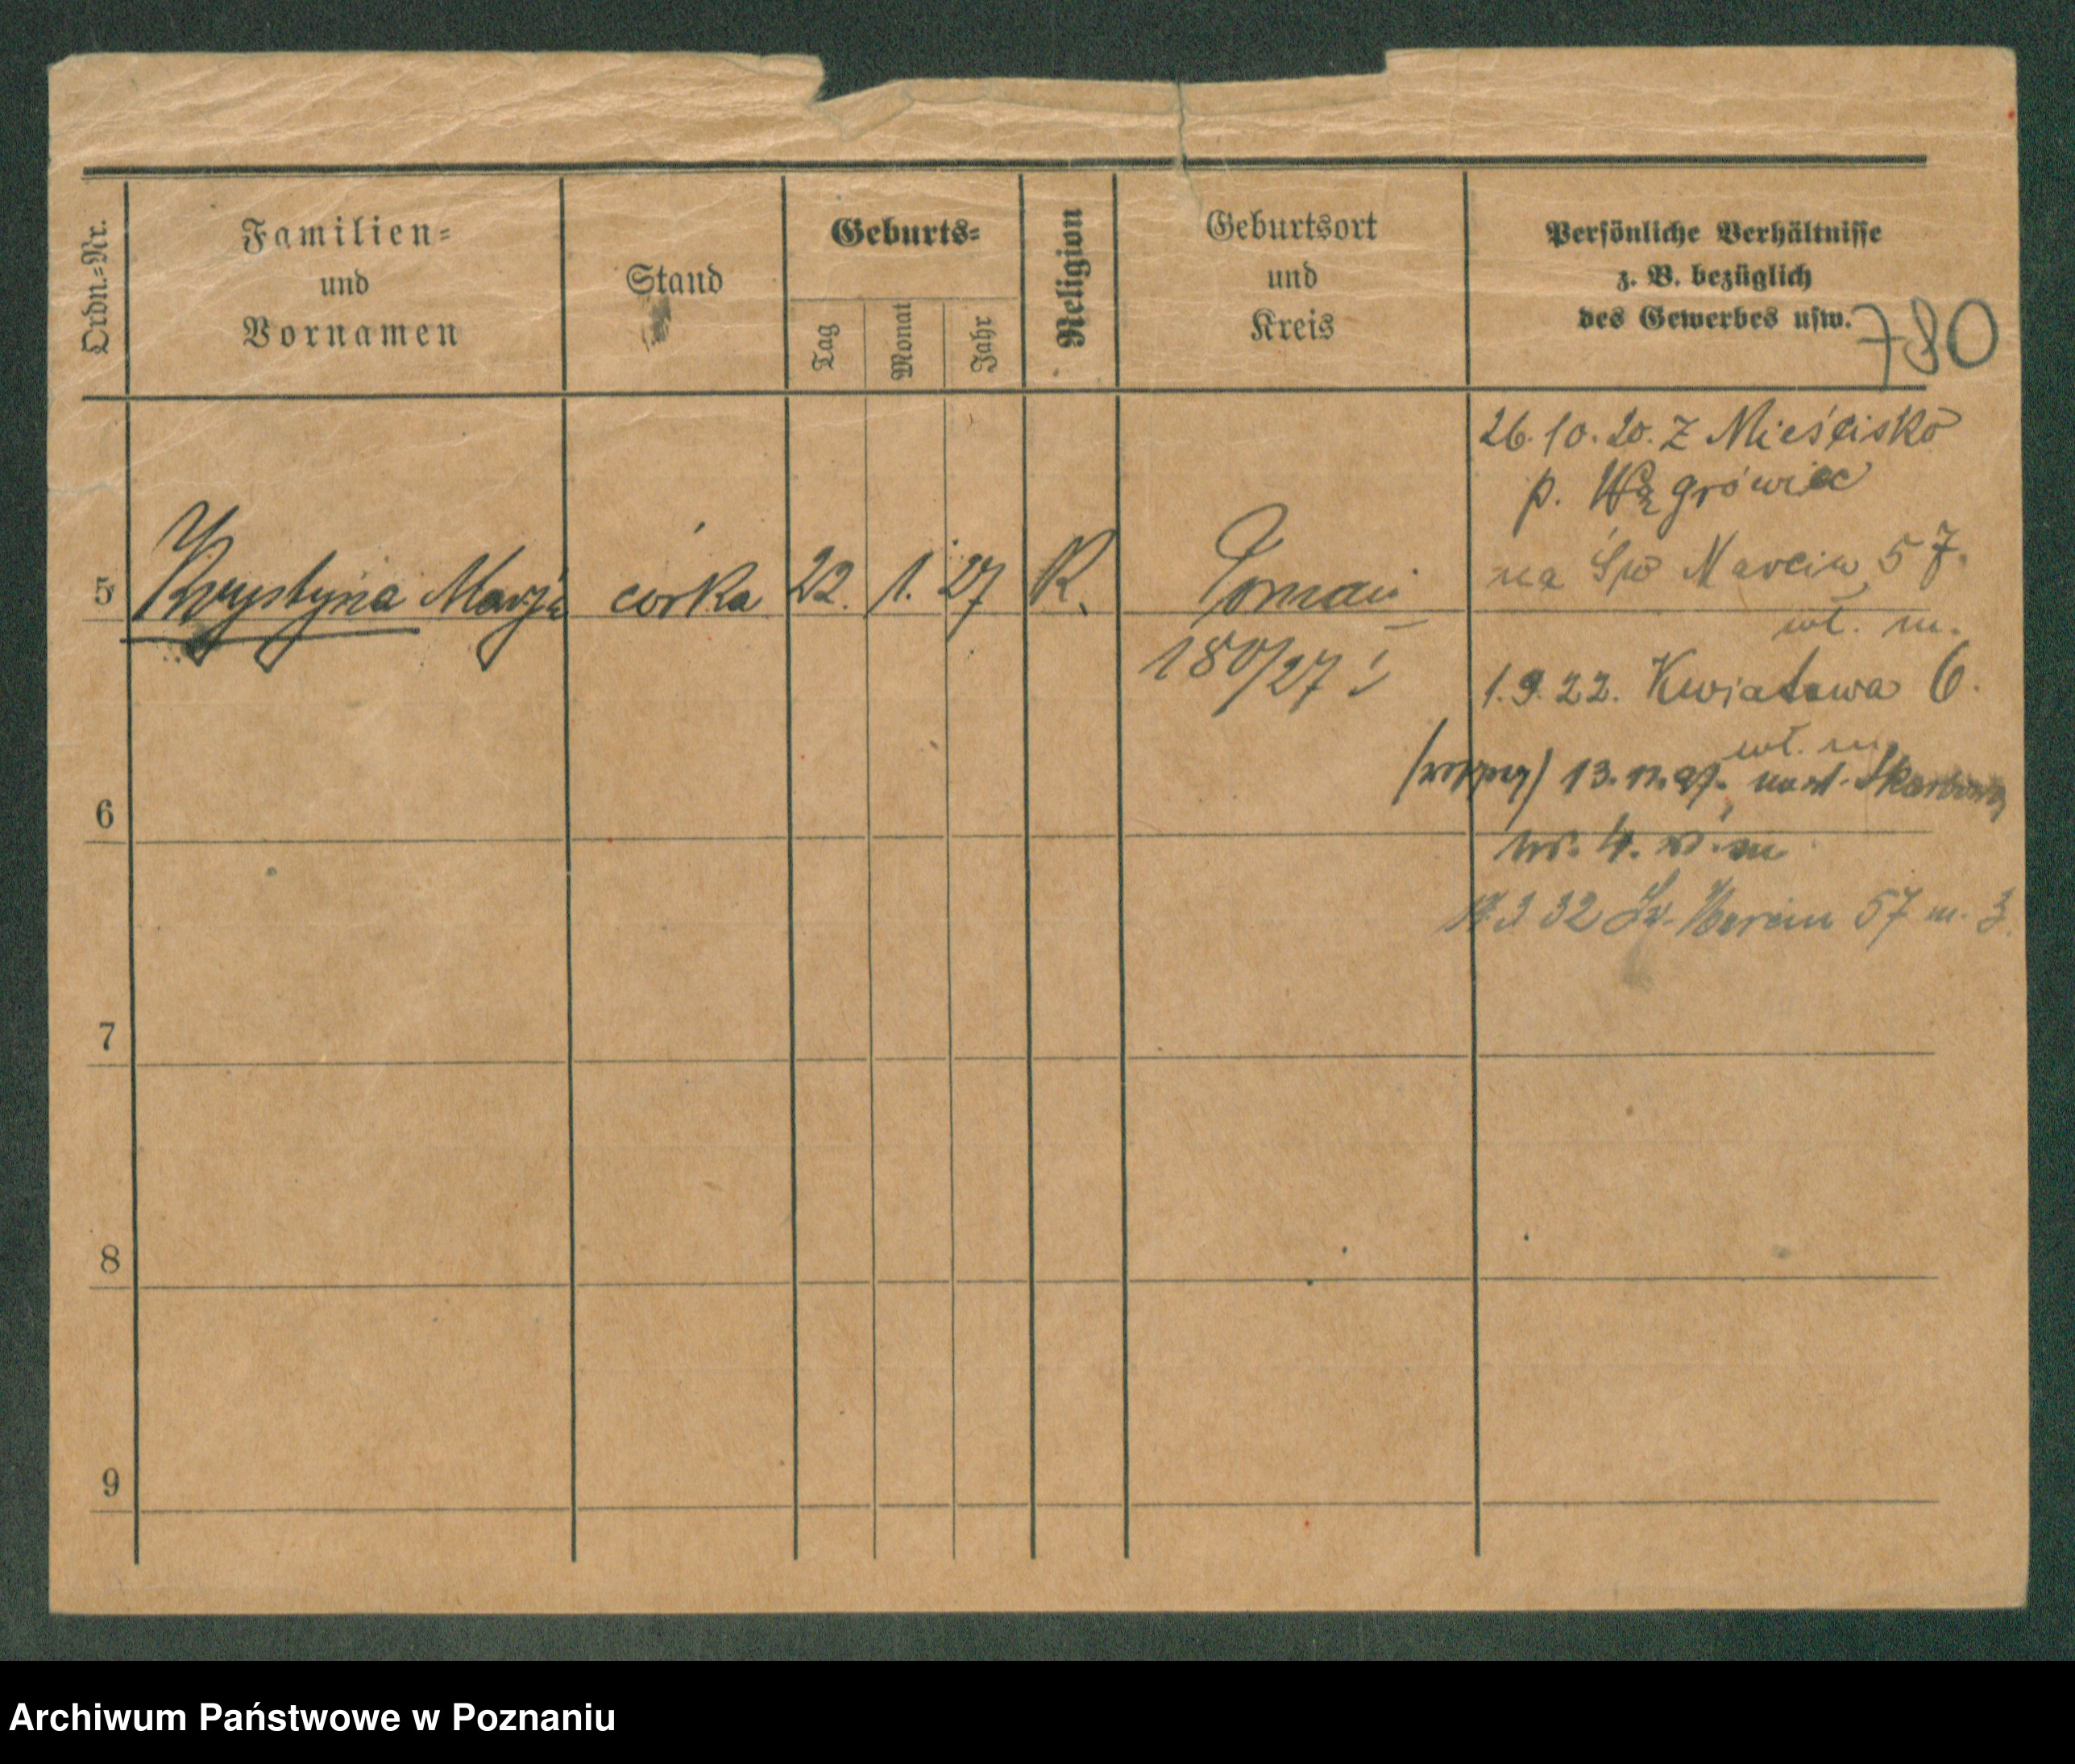 Ordn.=Nr.
Familien=
und
Vornamen
Stand
Geburts=
Tag
Monat
Jahr
Religion
Geburtsort
und
Kreis
Persönliche Verhältnisse
z. B. bezüglich
des Gewerbes usw.
780
5 Krystyna Marja córka 22. 1. 27 R. Poznań
180/27
26.10.20. Z Mieścisko
p. Wągrówiec
na Św Marcin 57.
wł. m.
1.9.22. Kwiatowa 6.
wł. m.
13. 11. 27. Skarbowa
nr. 4. w. m
32 Św. Marcin 57 m. 3.
6
7
8
9
Archiwum Państwowe w Poznaniu